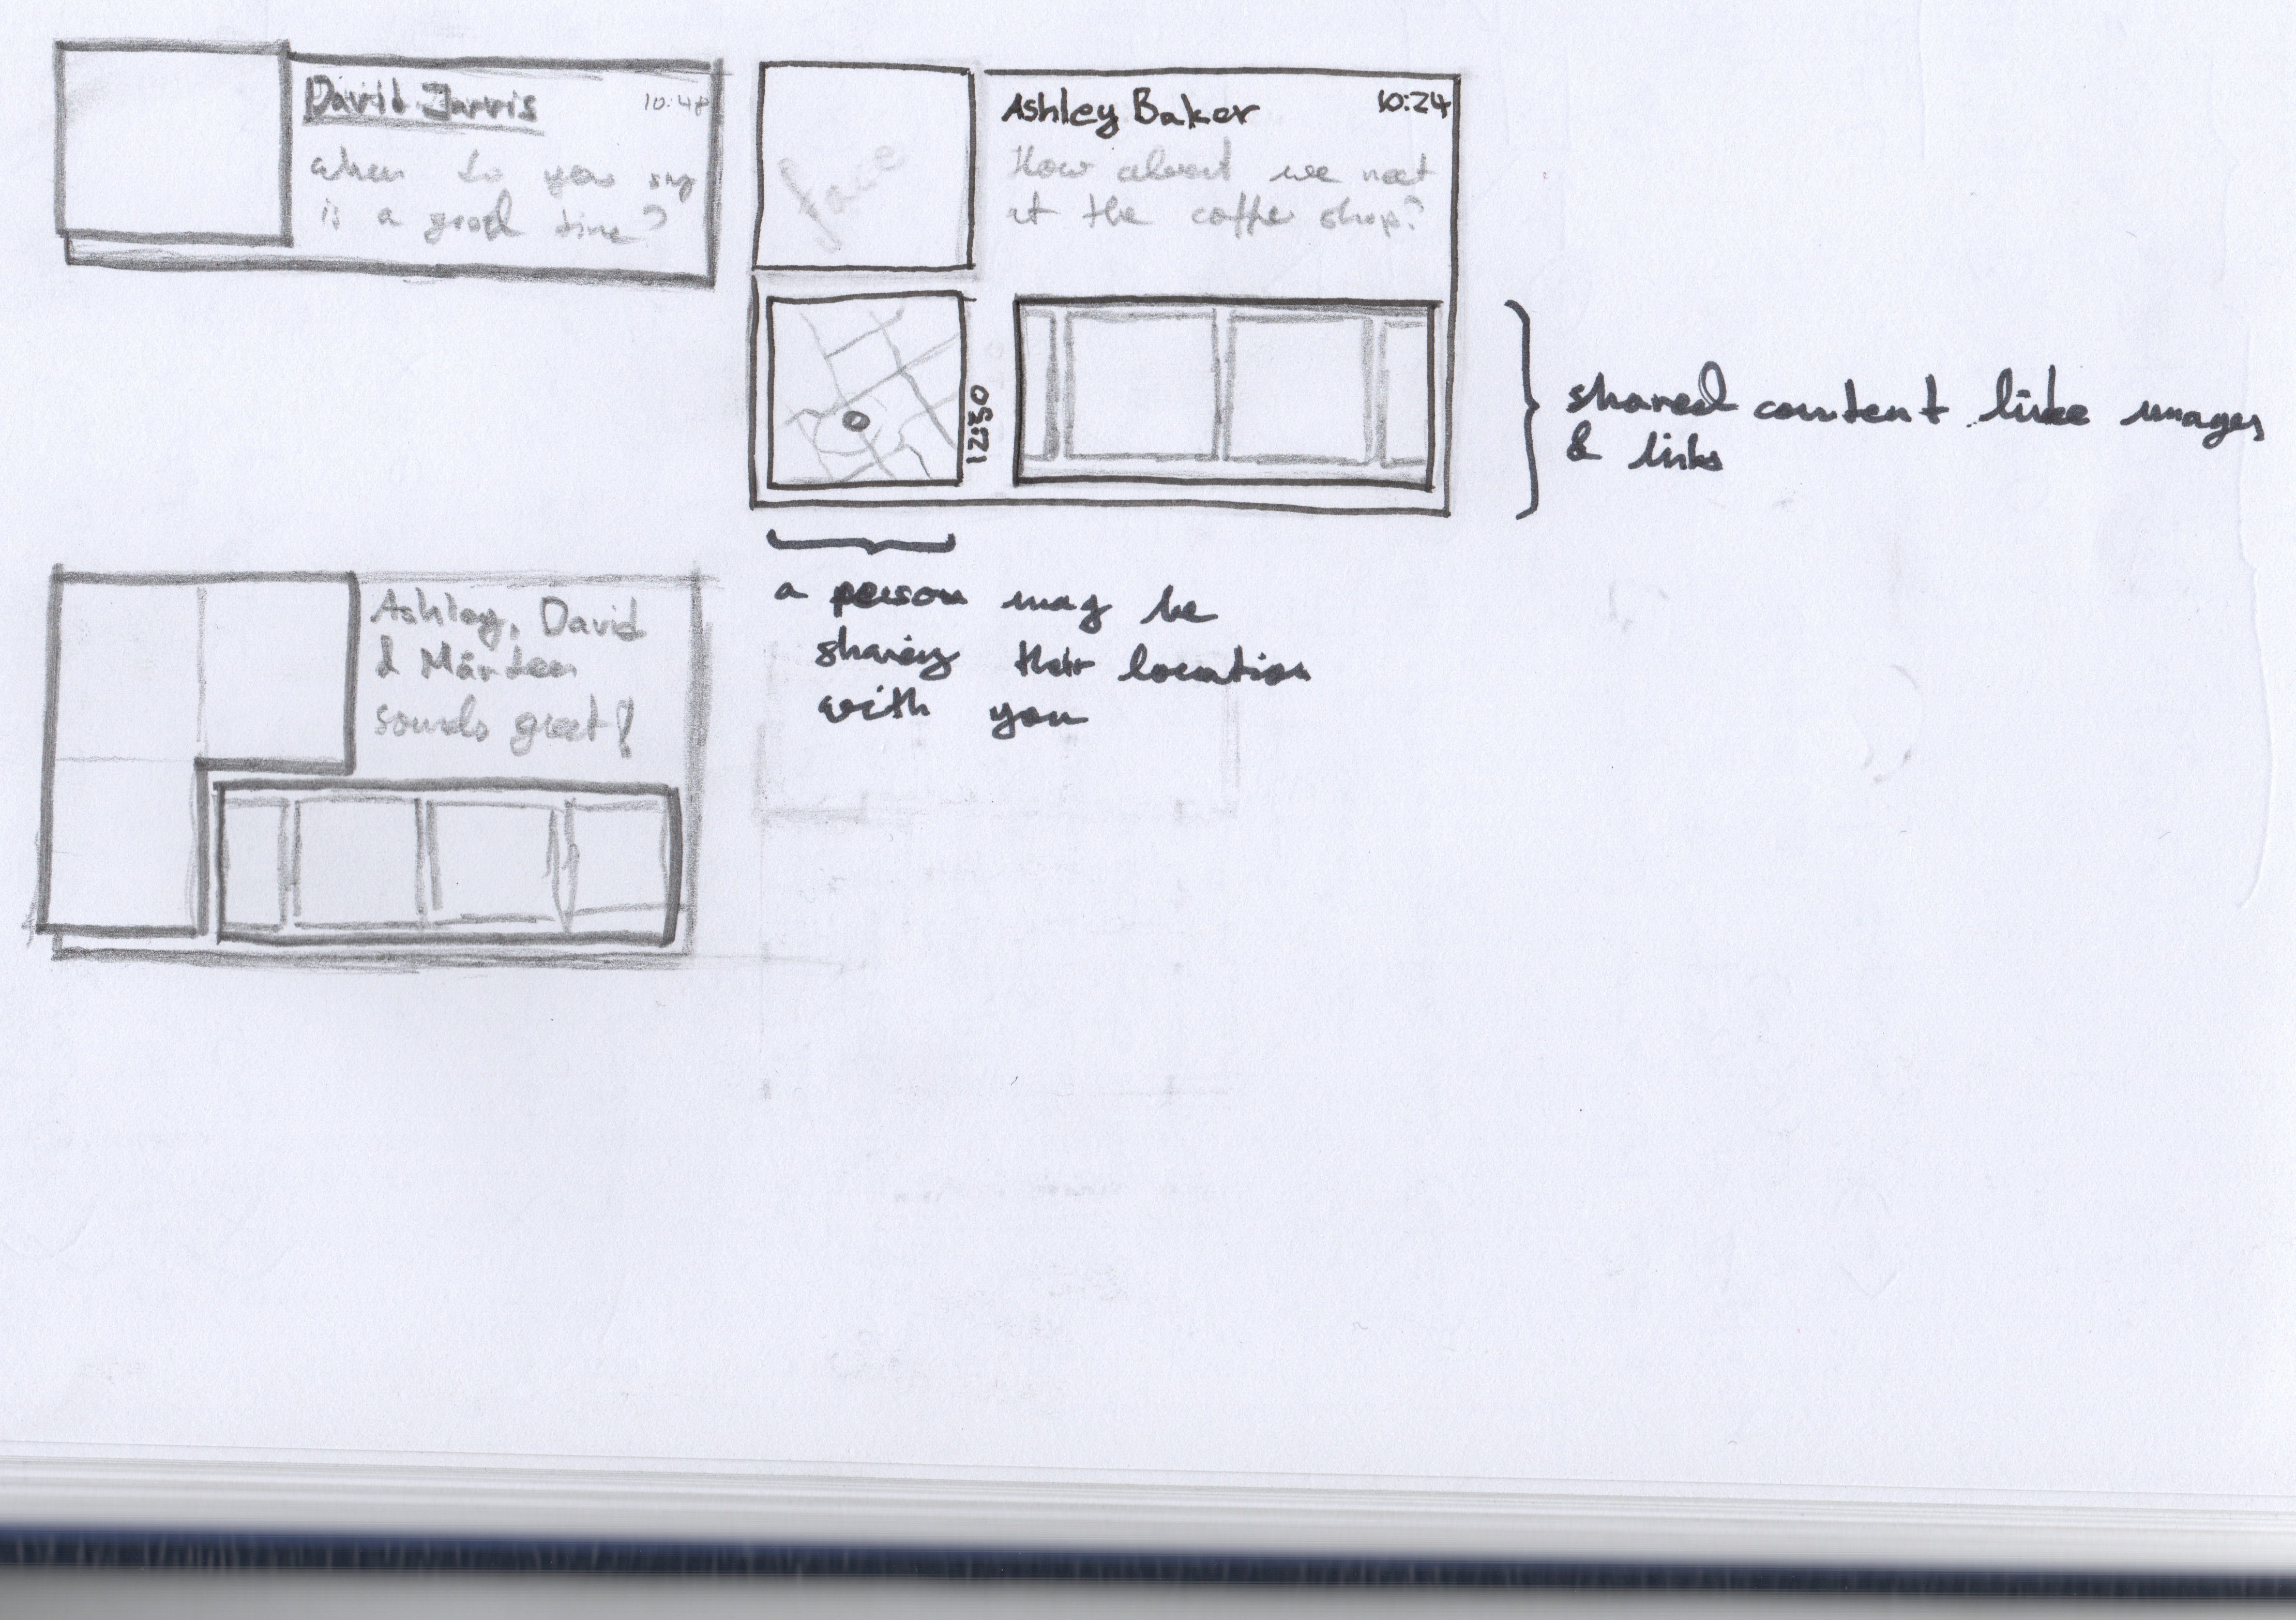 David Jarvis
10:48
when do you say
is a good time?
face
Ashley Baker
10:24
How about we meet
at the coffe shop?
12:50
shared content like images
& links
a person may be
sharing their location
with you
Ashley, David
& Mårten
sounds great!